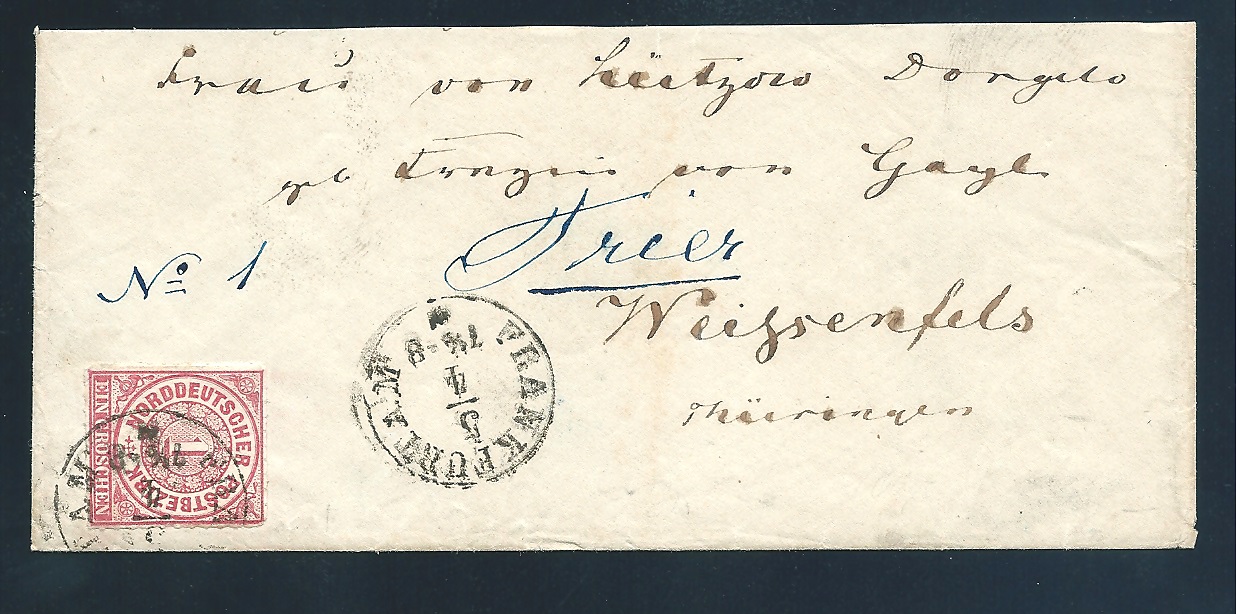 Frau von Lützow Dorgelo
gb Freyin von Gayl
Trier
No 1
Weißenfels
Thüringen
FRANKFURT A. M.
7½-8
4
5
NORDDEUTSCHER POSTBEZIRK
EIN GROSCHEN
1